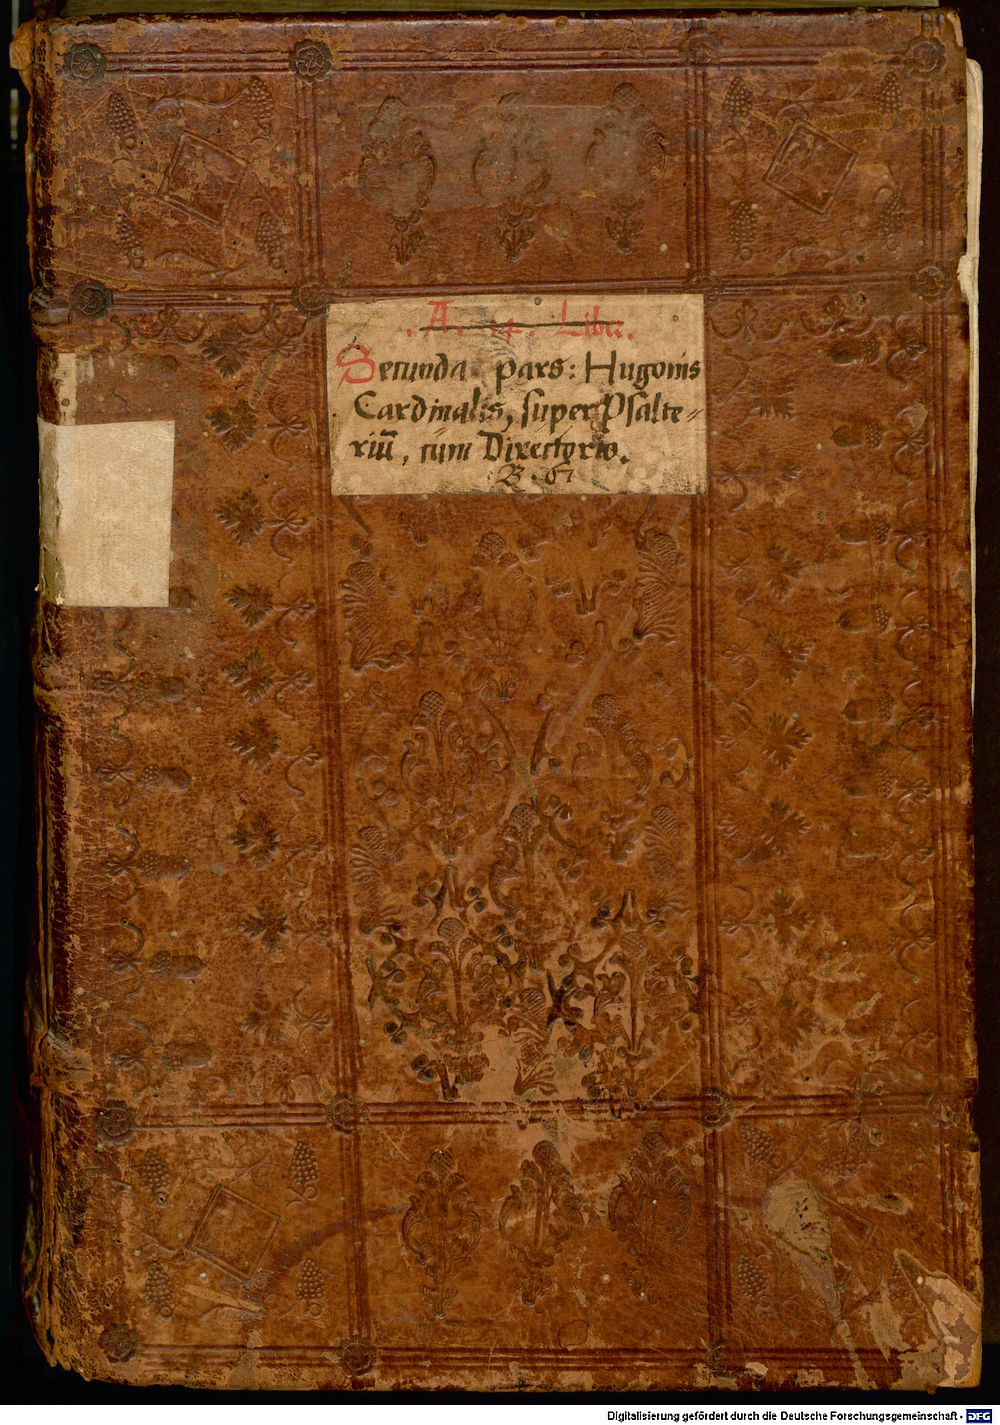 . A. 14. Libr.
Secunda pars: Hugonis
Cardinalis, super Psalte=
riū, cum Directorio.
B. 6
Digitalisierung gefördert durch die Deutsche Forschungsgemeinschaft - DFG